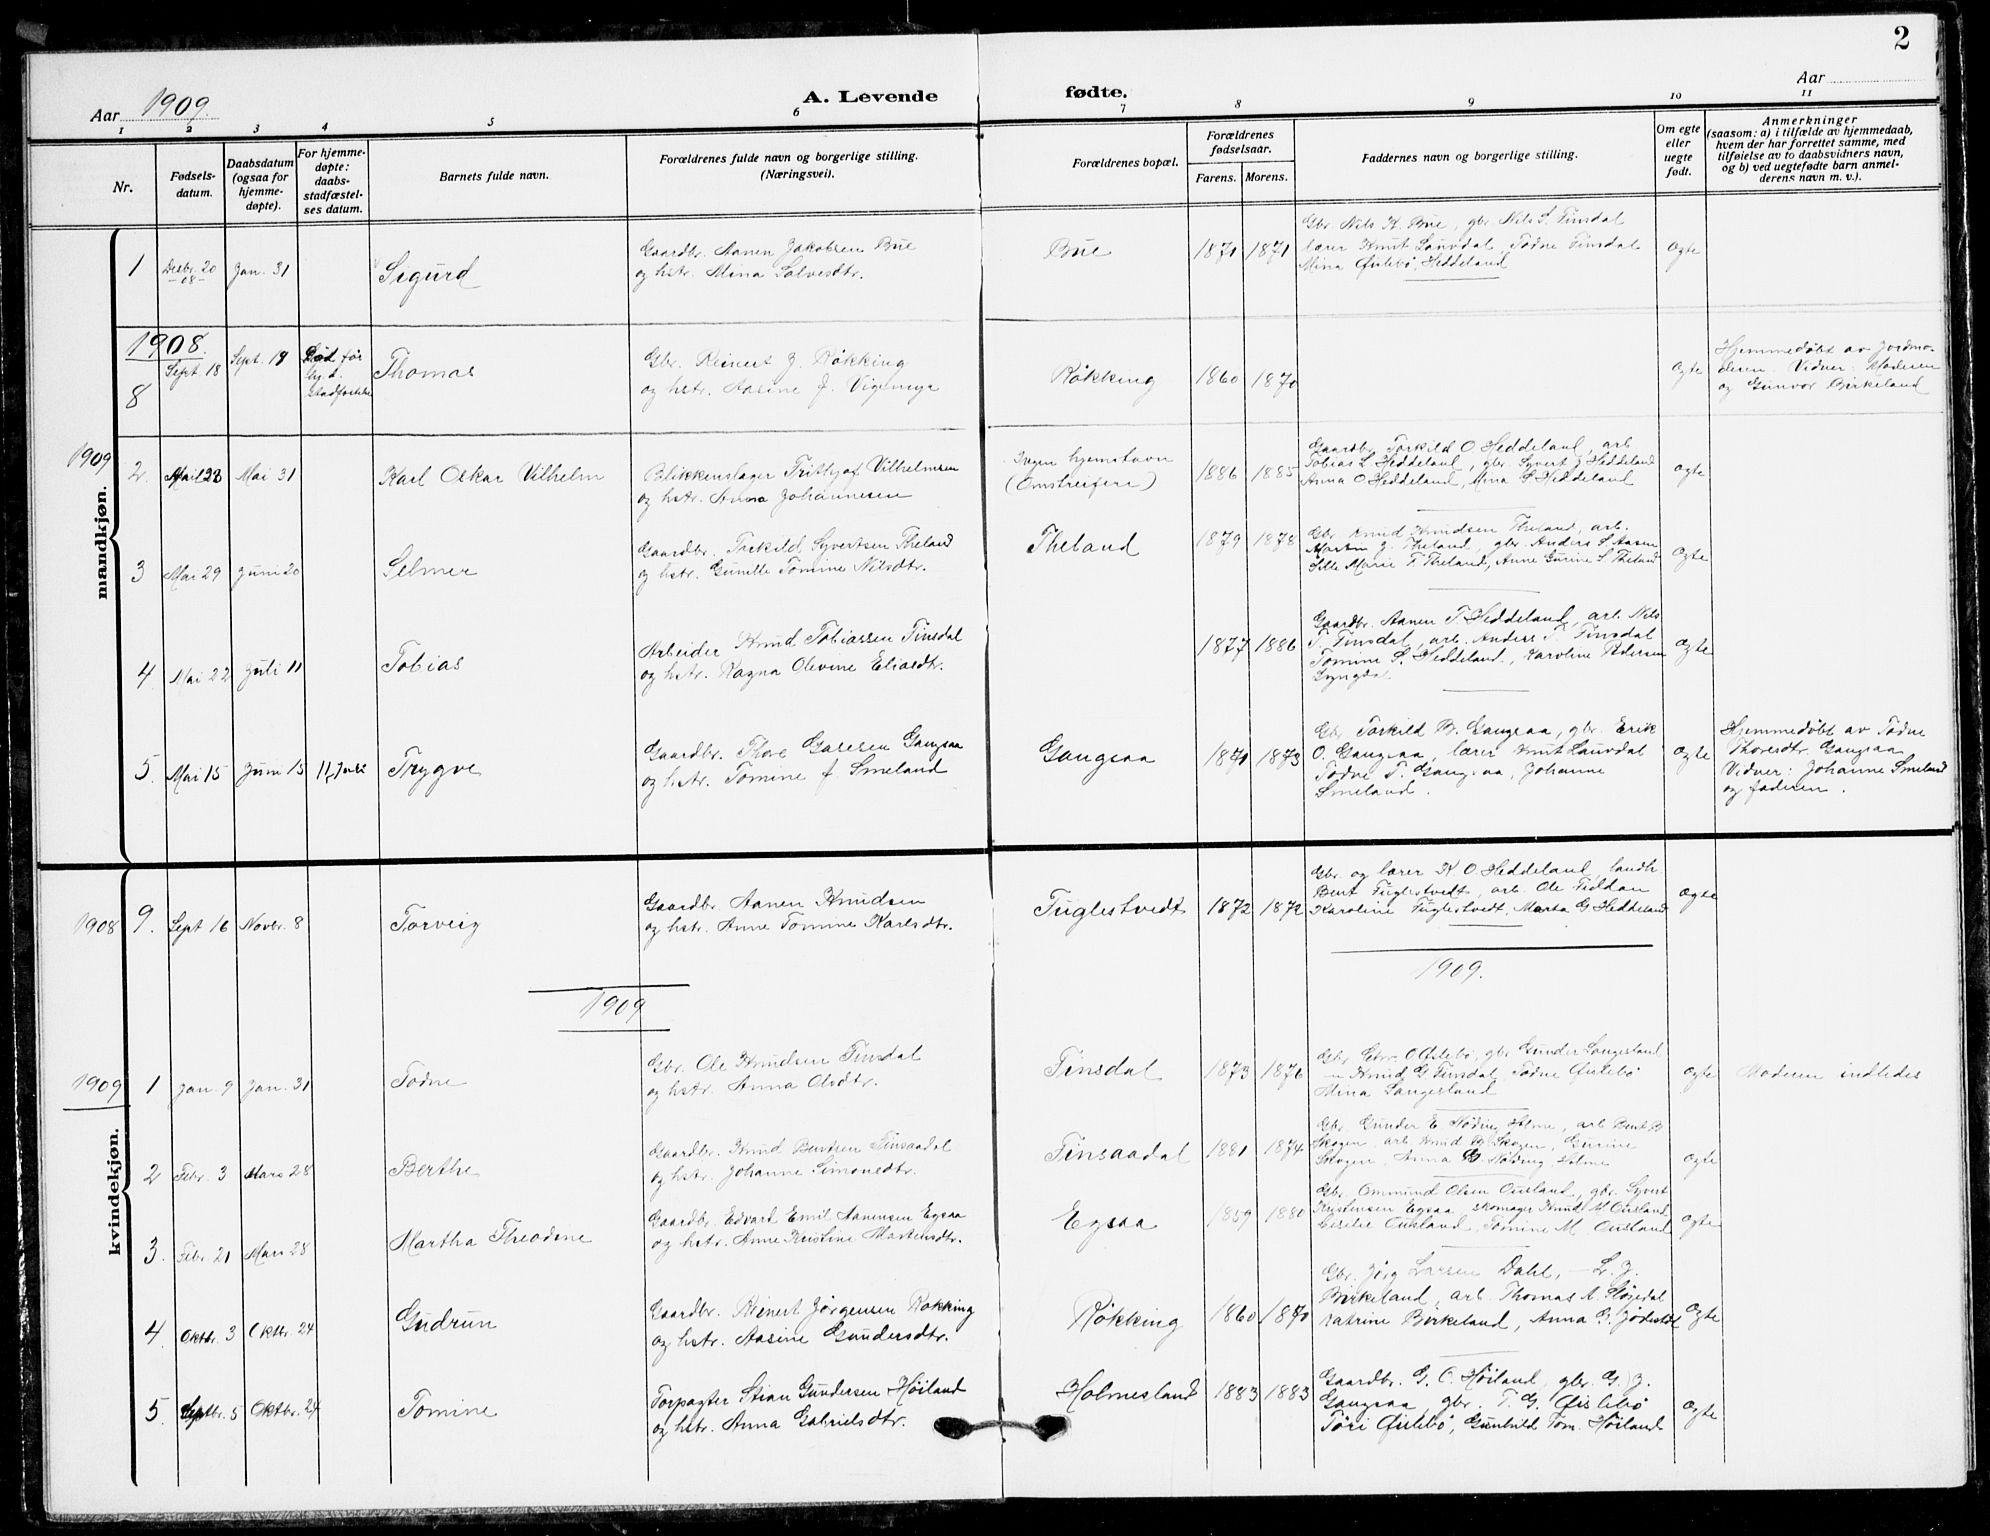 2
Aar 1909.
A. Levende fødte.
Aar
1 2 3 4 5 6 7 8 9 10 11
Nr.
Fødsels-
datum.
Daabsdatum
(ogsaa for
hjemme-
døpte).
For hjemme-
døpte:
daabs-
stadfæstel-
ses datum.
Barnets fulde navn.
Forældrenes fulde navn og borgerlige stilling.
(Næringsvei).
Forældrenes bopæl.
Forældrenes
fødselsaar.
Farens. Morens.
Faddernes navn og borgerlige stilling.
Om egte
eller
uegte
født.
Anmerkninger
(saasom: a) i tilfælde av hjemmedaab,
hvem der har forrettet samme, med
tilføielse av to daabsvidners navn,
og b) ved uegtefødte barn anmel-
derens navn m. v.).
mandkjøn.
1
Desbr. 20
-08-
Jan. 31
Sigurd
Gaardbr. Aanen Jakobsen Bue
og hstr. Mina Salvesdtr.
Bue
1871 1871
Gbr. Nils K. Bue, gbr. Nils S. Tinsdal
lærer Knut Lauvdal, Todne Tinsdal
Mina Øislebø, Heddeland
Ogte
1908.
8
Sept. 18
Sept. 19
Død før
Thomas
Gbr. Reinert J. Røkking
og hstr. Aasine f. Vigemyr
Røkking
1860 1870
Ogte
Hjemmedøbt av Jordmo-
deren. Vidner: Moderen
og Gunvor Birkeland
1909
2
Mai 31
Karl Oskar Vilhelm
Blikkenslager Frithjof Vilhelmsen
og hstr. Anna Johannesen
Ingen hjemstavn
(Omstreifere)
1886 1885
Gaardbr. Torkild O Heddeland, arb
Tobias L Heddeland, gbr. Syvert J Heddeland
Anna O Heddeland, Mina S Heddeland
Ogte
3
Mai 29
Juni 20
Selmer
Gaardbr. Torkild Syvertsen Theland
og hstr. Gunille Tomine Nilsdtr.
Theland
1879 1878
Gbr. Knud Knudsen Theland, arb.
Martin J. Theland, gbr. Anders S Aasen
Sille Marie T Theland, Anne Gurine S Theland
Ogte
4
Mai 22
Juli 11
Tobias
Arbeider Knud Tobiassen Tinsdal
og hstr. Ragna Olevine Eliasdtr.
1877 1886
Gaardbr. Aanen T. Heddeland, arb. Nils
T. Tinsdal, arb. Anders T. Tinsdal
Tomine S. Heddeland, Karoline Pedersen
Lyngdal
Ogte
5.
Mai 15
Juni 15
11 Juli
Trygve
Gaardbr. Thore Gasesen Gangsaa
og hstr. Tomine f. Smeland
Gangsaa
1871 1873
Gbr. Torkild B. Gangsaa, gbr. Erik
O. Gangsaa, lærer Knut Lauvdal
Todne T. Gangsaa, Johanne
Smeland.
Ogte
Hjemmedøbt av Todne
Thoresdtr. Gangsaa
Vidner: Johanne Smeland
og faderen.
kvindekjøn.
1908
9.
Sept 16
Novbr. 8
Torveig
Gaardbr. Aanen Knudsen
og hstr. Anne Tomine Karlsdtr.
Fuglestvedt
1872 1872
Gbr. og lærer K O. Heddeland, landh
Bent Fuglestvedt, arb. Ole Fiddan
Karoline Fuglestvedt, Marta G. Heddeland
Ogte
1909
1909.
1909
1
Jan. 9
Jan. 31
Todne
Gbr. Ole Knudsen Tinsdal
og hstr. Anna Olsdtr.
Tinsdal
1873 1876
Gbr. O Øislebø, gbr Gunder Langesland
— Knud G. Tinsdal, Todne Øislebø
Mina Langesland
Ogte
Moderen indledes
2
Febr. 3
Mars 28
Berthe
Gaardbr. Knud Bentsen Tinsaadal
og hstr. Johanne Simonsdtr.
Finsaadal
1881 1874
Gbr. Gunder E Nøding Holme, arb. Bent B
Skogen, arb. Knud B Skogen, Gurine
Skogen, Anna G. Nøding Holme
Ogte
3.
Febr. 21
Mars 28
Martha Theodine
Gaardbr. Edvart Emil Aanensen Egsaa
og hstr. Anne Kristine Mortensdtr.
Egsaa
1859 1880
Gbr. Ommund Olsen Ousland, gbr. Syvert
Kristensen Egsaa skomager Knud M. Ousland
Ousland, Tomine M. Ousland
Ogte
4
Oktbr. 3
Oktbr. 24
Gudrun
Gaardbr. Reinert Jørgensen Røkking
og hstr. Aasine Gundersdtr.
Røkking
1860 1870
Gbr. Jørg Larsen Dahl, — L. J.
Birkeland, arb. Thomas A. Høiedal
Katrine Birkeland, Anna G. Jødestøl
Ogte
5.
Septbr. 5
Oktbr. 24
Tomine
Forpagter Stian Gundersen Høiland
og hstr. Anna Gabrielsdtr.
Holmesland
1883 1883
Gaardbr. G. O. Høiland, gbr. G. J.
Gangsaa, gbr. T. G. Øislebø
Tøri Øislebø, Gunhild Tom. Høiland
Ogte